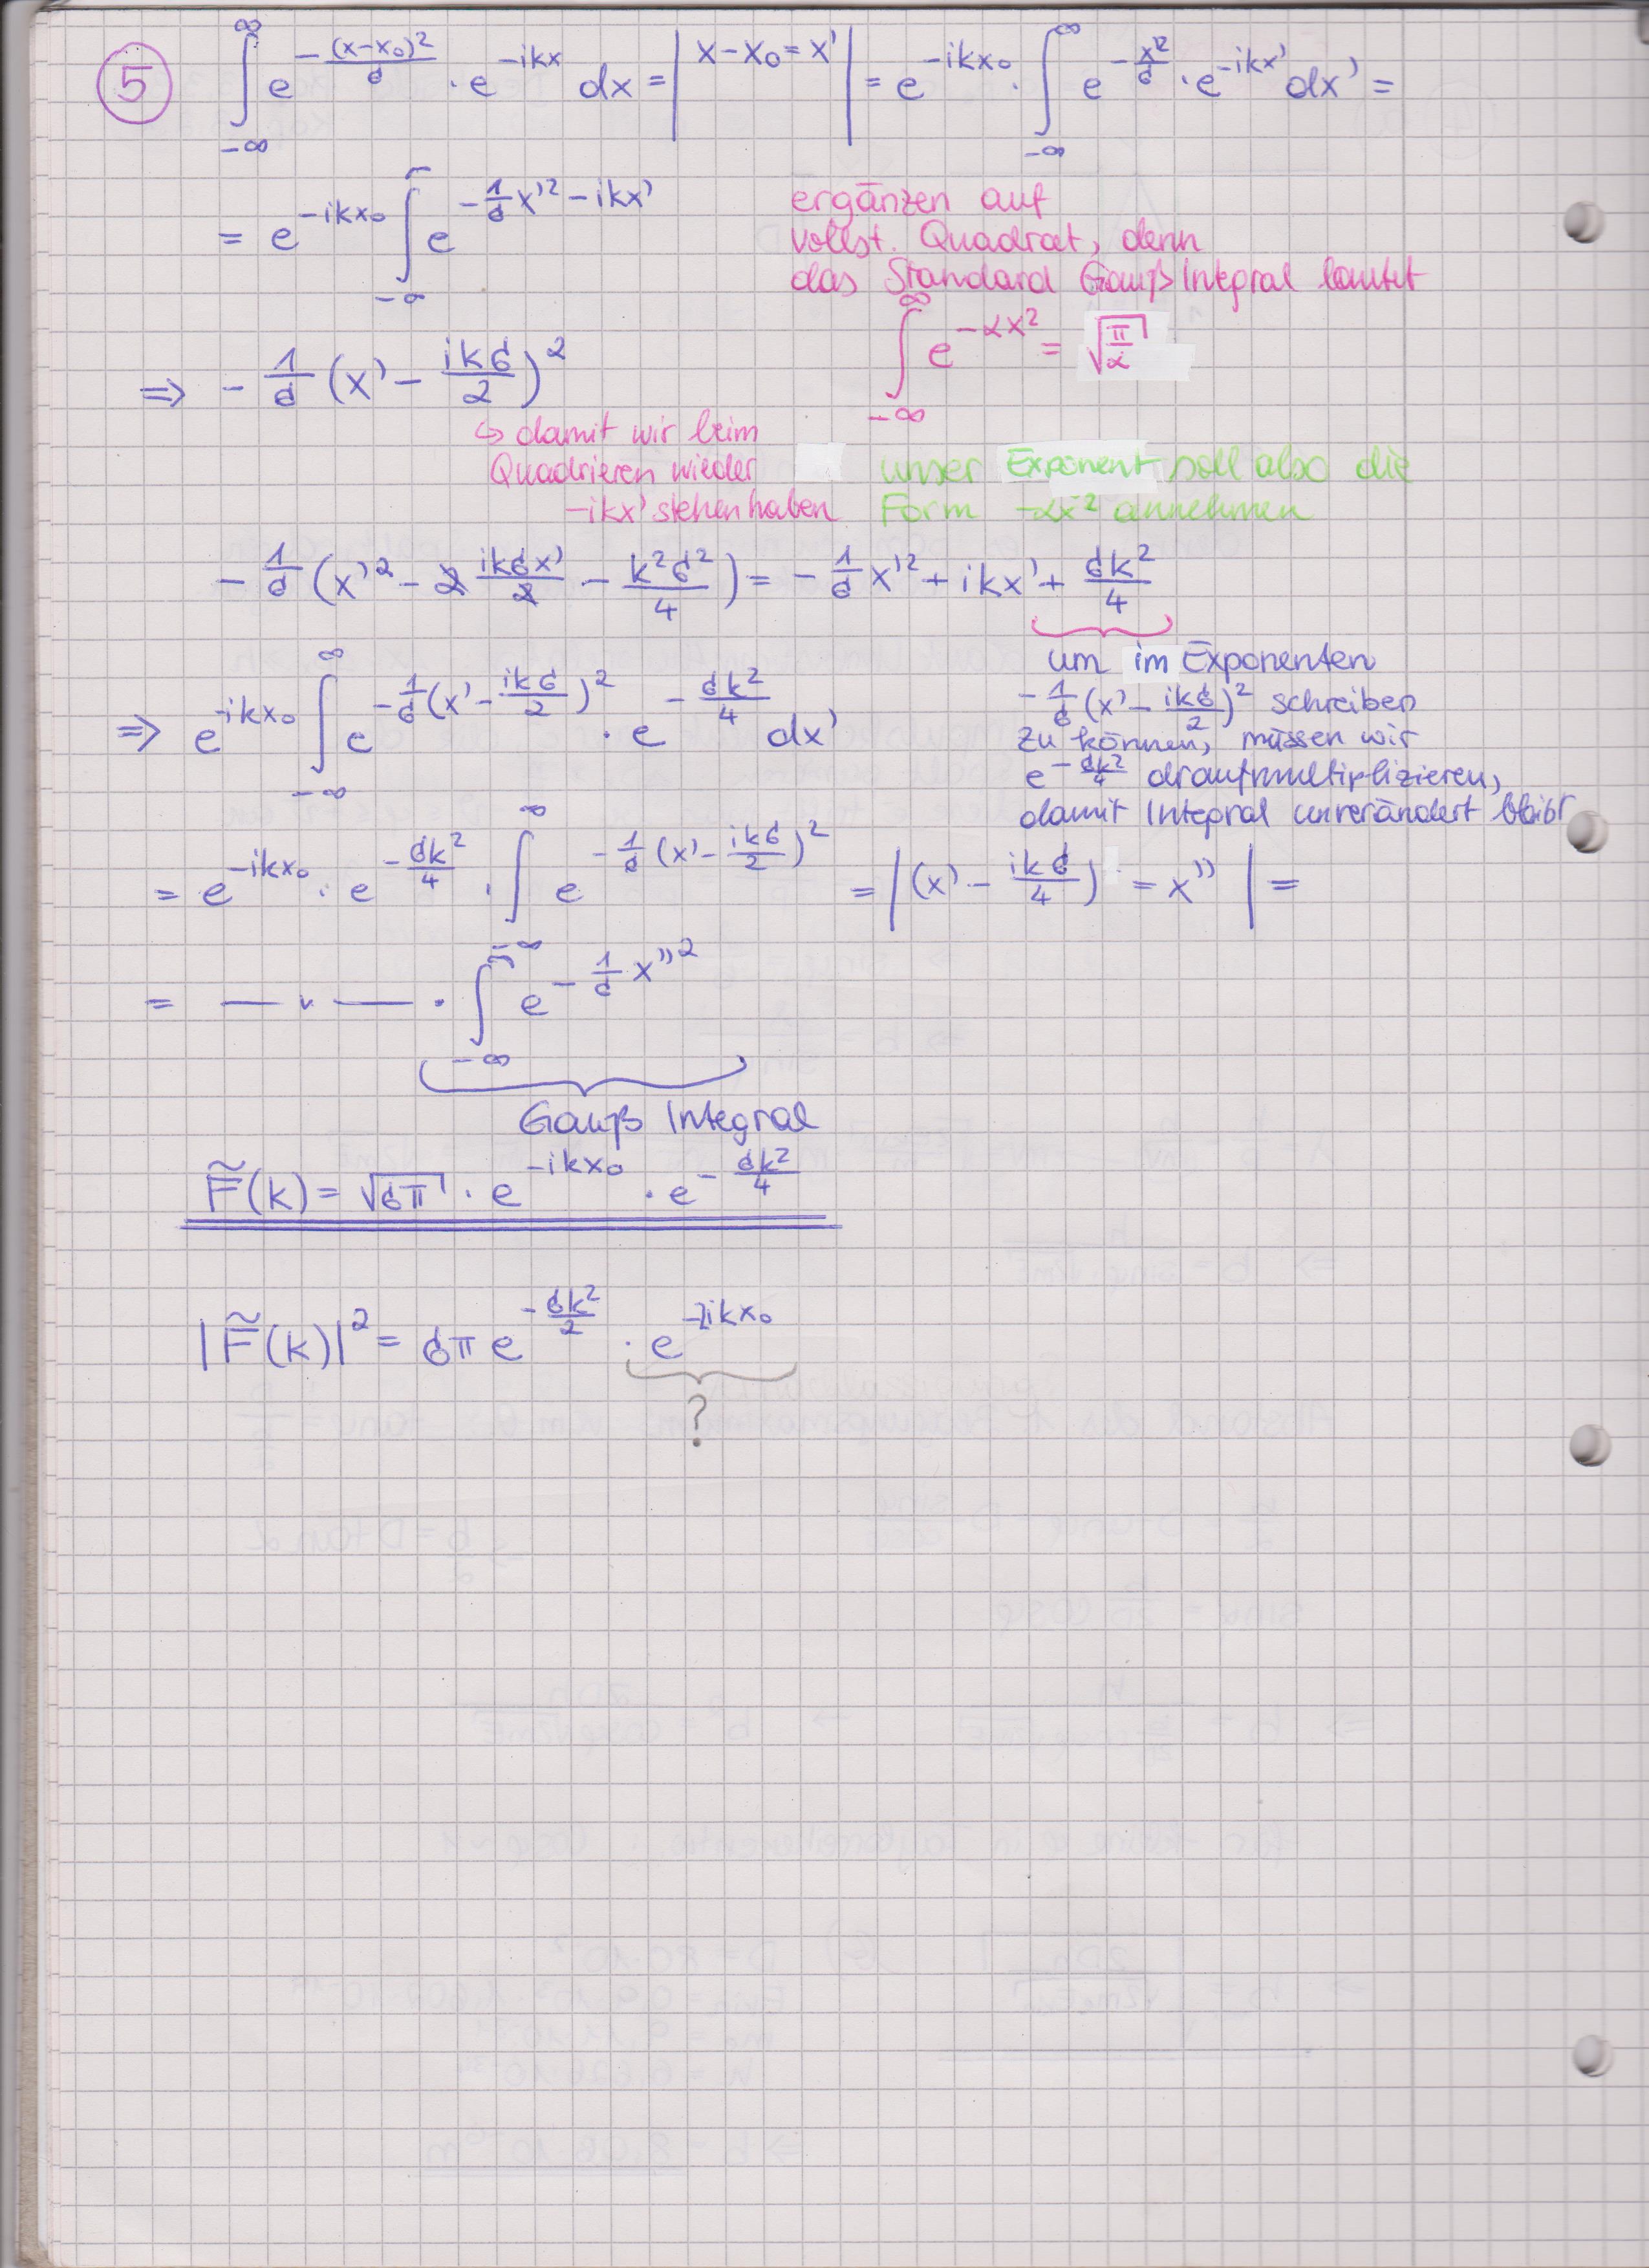 ⑤ ∫_{-∞}^{∞} e^{-(x-x₀)²/σ} · e^{-ikx} dx = | x-x₀ = x' | = e^{-ikx₀} · ∫_{-∞}^{∞} e^{-x'²/σ} · e^{-ikx'} dx' =
= e^{-ikx₀} ∫_{-∞} e^{-1/σ x'² - ikx'}
ergänzen auf
vollst. Quadrat, denn
das Standard Gauß Integral lautet
∫_{-∞}^{∞} e^{-αx²} = √(π/α)
⇒ - 1/σ (x' - ikσ/2)²
↪ damit wir beim
Quadrieren wieder
-ikx' stehen haben
unser Exponent soll also die
Form -αx² annehmen
- 1/σ (x'² - 2 ikσx'/2 - k²σ²/4) = - 1/σ x'² + ikx' + σk²/4
um im Exponenten
- 1/σ (x' - ikσ/2)² schreiben
zu können, müssen wir
e^{-σk²/4} draufmultiplizieren,
damit Integral unverändert bleibt
⇒ e^{-ikx₀} ∫_{-∞}^{∞} e^{-1/σ (x' - ikσ/2)²} · e^{-σk²/4} dx'
= e^{-ikx₀} · e^{-σk²/4} · ∫_{-∞}^{∞} e^{-1/σ (x' - ikσ/2)²} = | (x' - ikσ/4) = x'' | =
= — · — · ∫_{-∞}^{∞} e^{-1/σ x''²}
Gauß Integral
F̃(k) = √(σπ) · e^{-ikx₀} · e^{-σk²/4}
|F̃(k)|² = σπ e^{-σk²/2} · e^{-2ikx₀}
?